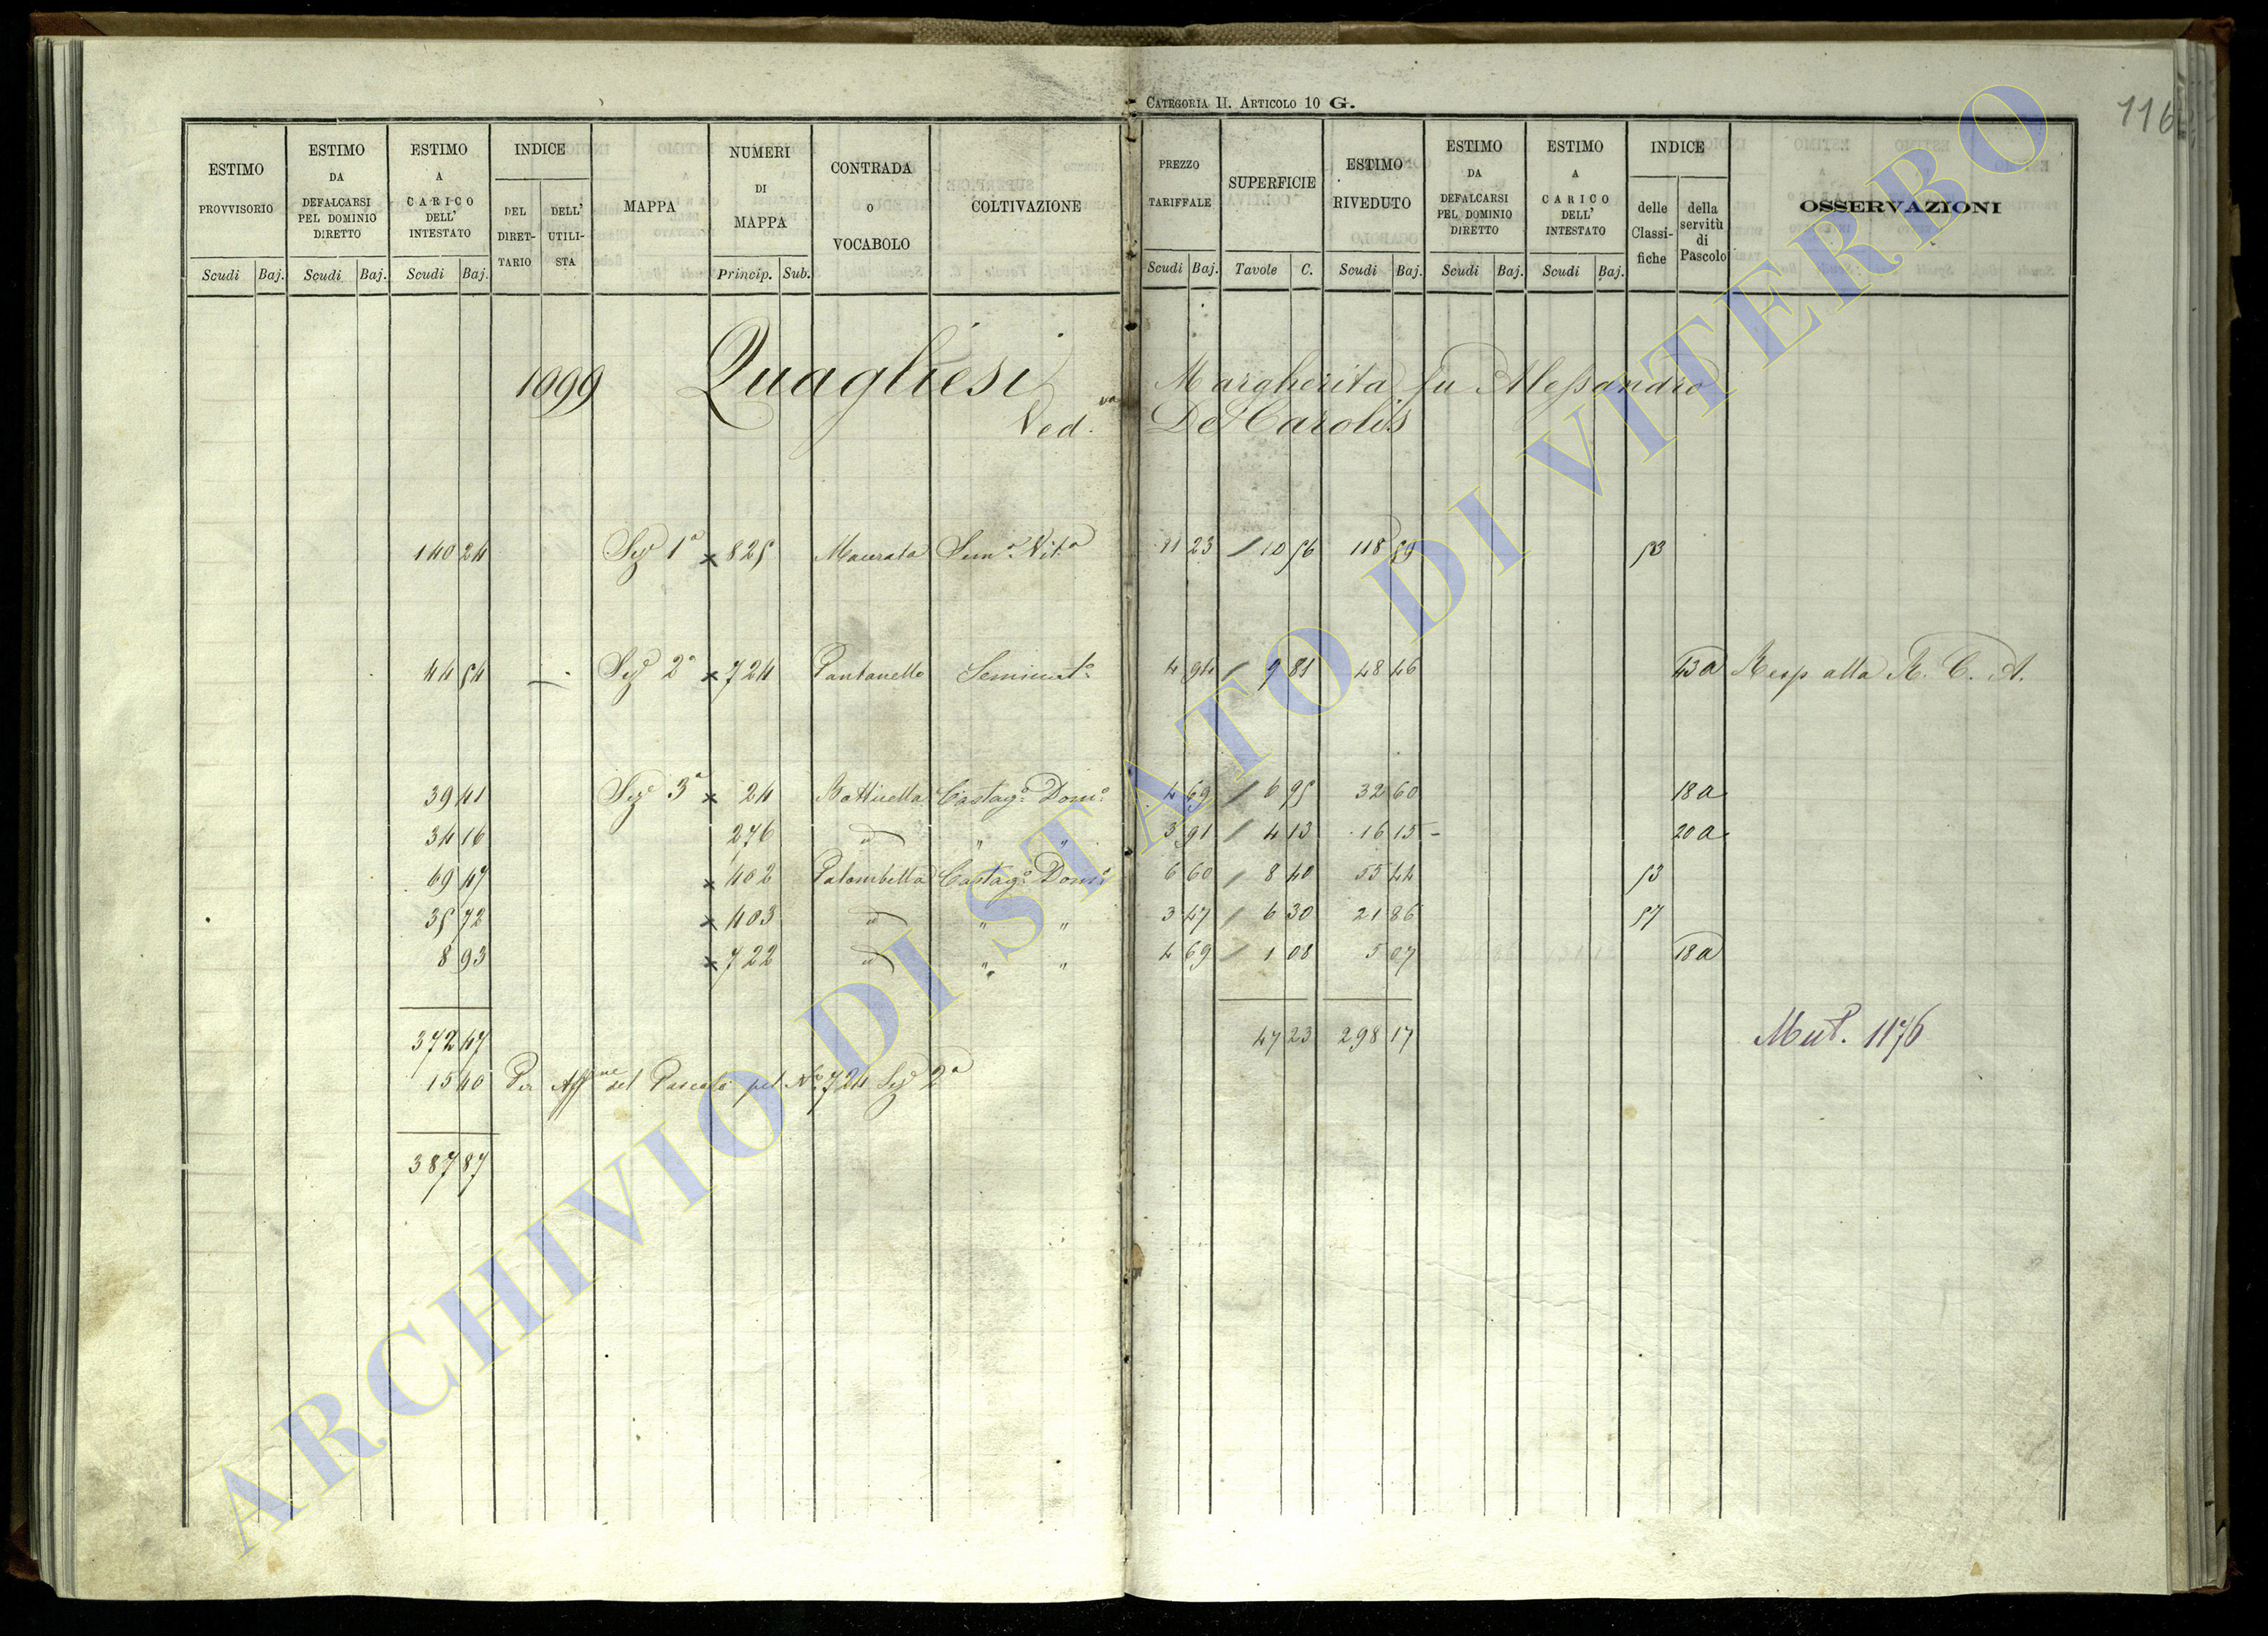 CATEGORIA II. ARTICOLO 10 G.
116
ESTIMO PROVVISORIO
ESTIMO DA DEFALCARSI PEL DOMINIO DIRETTO
ESTIMO A CARICO DELL' INTESTATO
INDICE
DEL DIRET-TARIO
DELL' UTILI-STA
MAPPA
NUMERI DI MAPPA
CONTRADA O VOCABOLO
COLTIVAZIONE
PREZZO TARIFFALE
SUPERFICIE
ESTIMO RIVEDUTO
ESTIMO DA DEFALCARSI PEL DOMINIO DIRETTO
ESTIMO A CARICO DELL' INTESTATO
INDICE
delle Classi-fiche
della servitù di Pascolo
OSSERVAZIONI
Scudi Baj. Scudi Baj. Scudi Baj. Princip. Sub. Scudi Baj. Tavole C. Scudi Baj. Scudi Baj. Scudi Baj.
1099 Quagliesi Margherita fu Alessandro
Ved.va De Carolis
140 24 Sez.e 1a x 825 Macrata Sem.o Vit.o 11 23 / 10 56 118 59 53
44 54 Sez.e 2a x 724 Pantanelle Seminat.o 4 94 / 9 81 48 46 43a Resp alla R. C. A.
39 41 Sez.e 3a x 24 Botticella Castag.o Dom.o 4 69 / 6 95 32 60 18a
34 16 276 id " " 3 91 / 4 13 16 15 20a
69 47 x 402 Palombella Castag.o Dom.o 6 60 / 8 40 55 44 53
35 72 x 403 id " " 3 47 / 6 30 21 86 57
8 93 x 722 id " " 4 69 / 1 08 5 07 18a
372 47 47 23 298 17 Mut. 1176
15 40 Per Aff.ne del Pascolo pel No 724 Sez.e 2a
387 87
ARCHIVIO DI STATO DI VITERBO